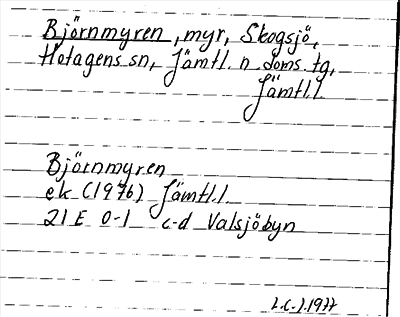 Björnmyren, myr, Skogsjö,
Hotagens sn, Jämtl. n doms. tg,
Jämtl.l
Björnmyren
ek (1976) Jämtl.l.
21 E 0-1 c-d Valsjöbyn
1977